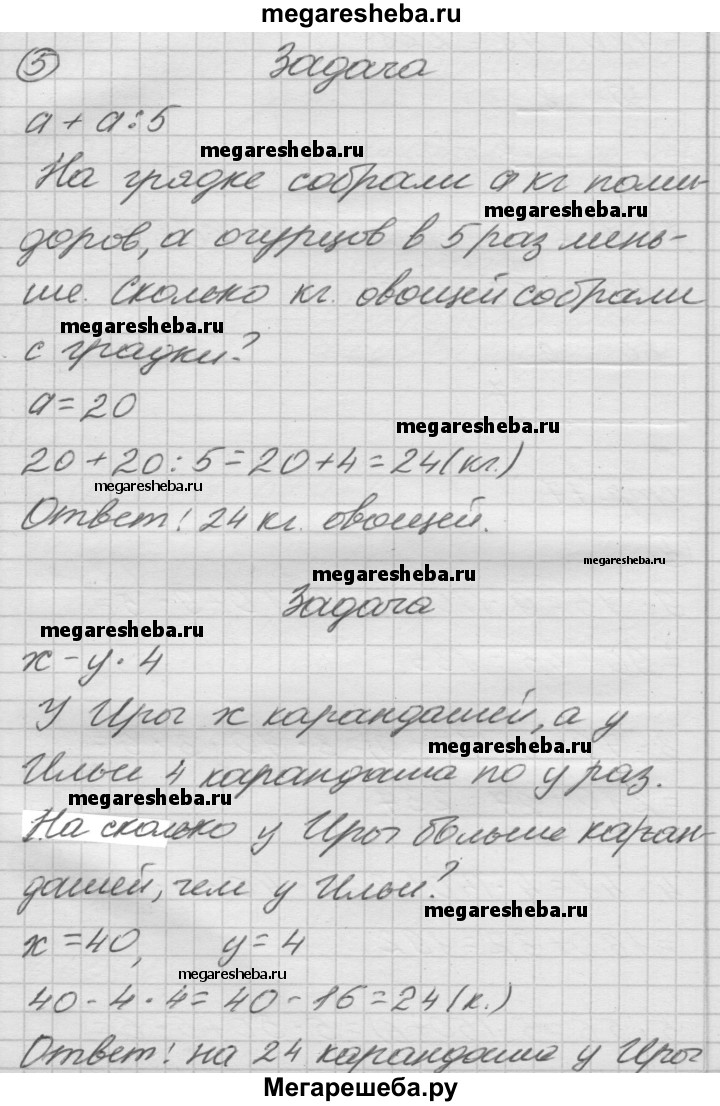 megaresheba.ru
5 Задача
а + а : 5
megaresheba.ru
На грядке собрали а кг поми-
megaresheba.ru
доров, а огурцов в 5 раз мень-
ше. Сколько кг. овощей собрали
megaresheba.ru
с грядки?
а = 20
megaresheba.ru
20 + 20 : 5 = 20 + 4 = 24 (кг.)
megaresheba.ru
Ответ! 24 кг. овощей.
megaresheba.ru
megaresheba.ru
Задача
megaresheba.ru
х - у · 4
У Иры х карандашей, а у
megaresheba.ru
Ильи 4 карандаша по у раз.
megaresheba.ru
На сколько у Иры больше каран-
дашей, чем у Ильи?
megaresheba.ru
х = 40, у = 4
megaresheba.ru
40 - 4 · 4 = 40 - 16 = 24 (к.)
Ответ! на 24 карандаша у Иры
Мегарешеба.ру